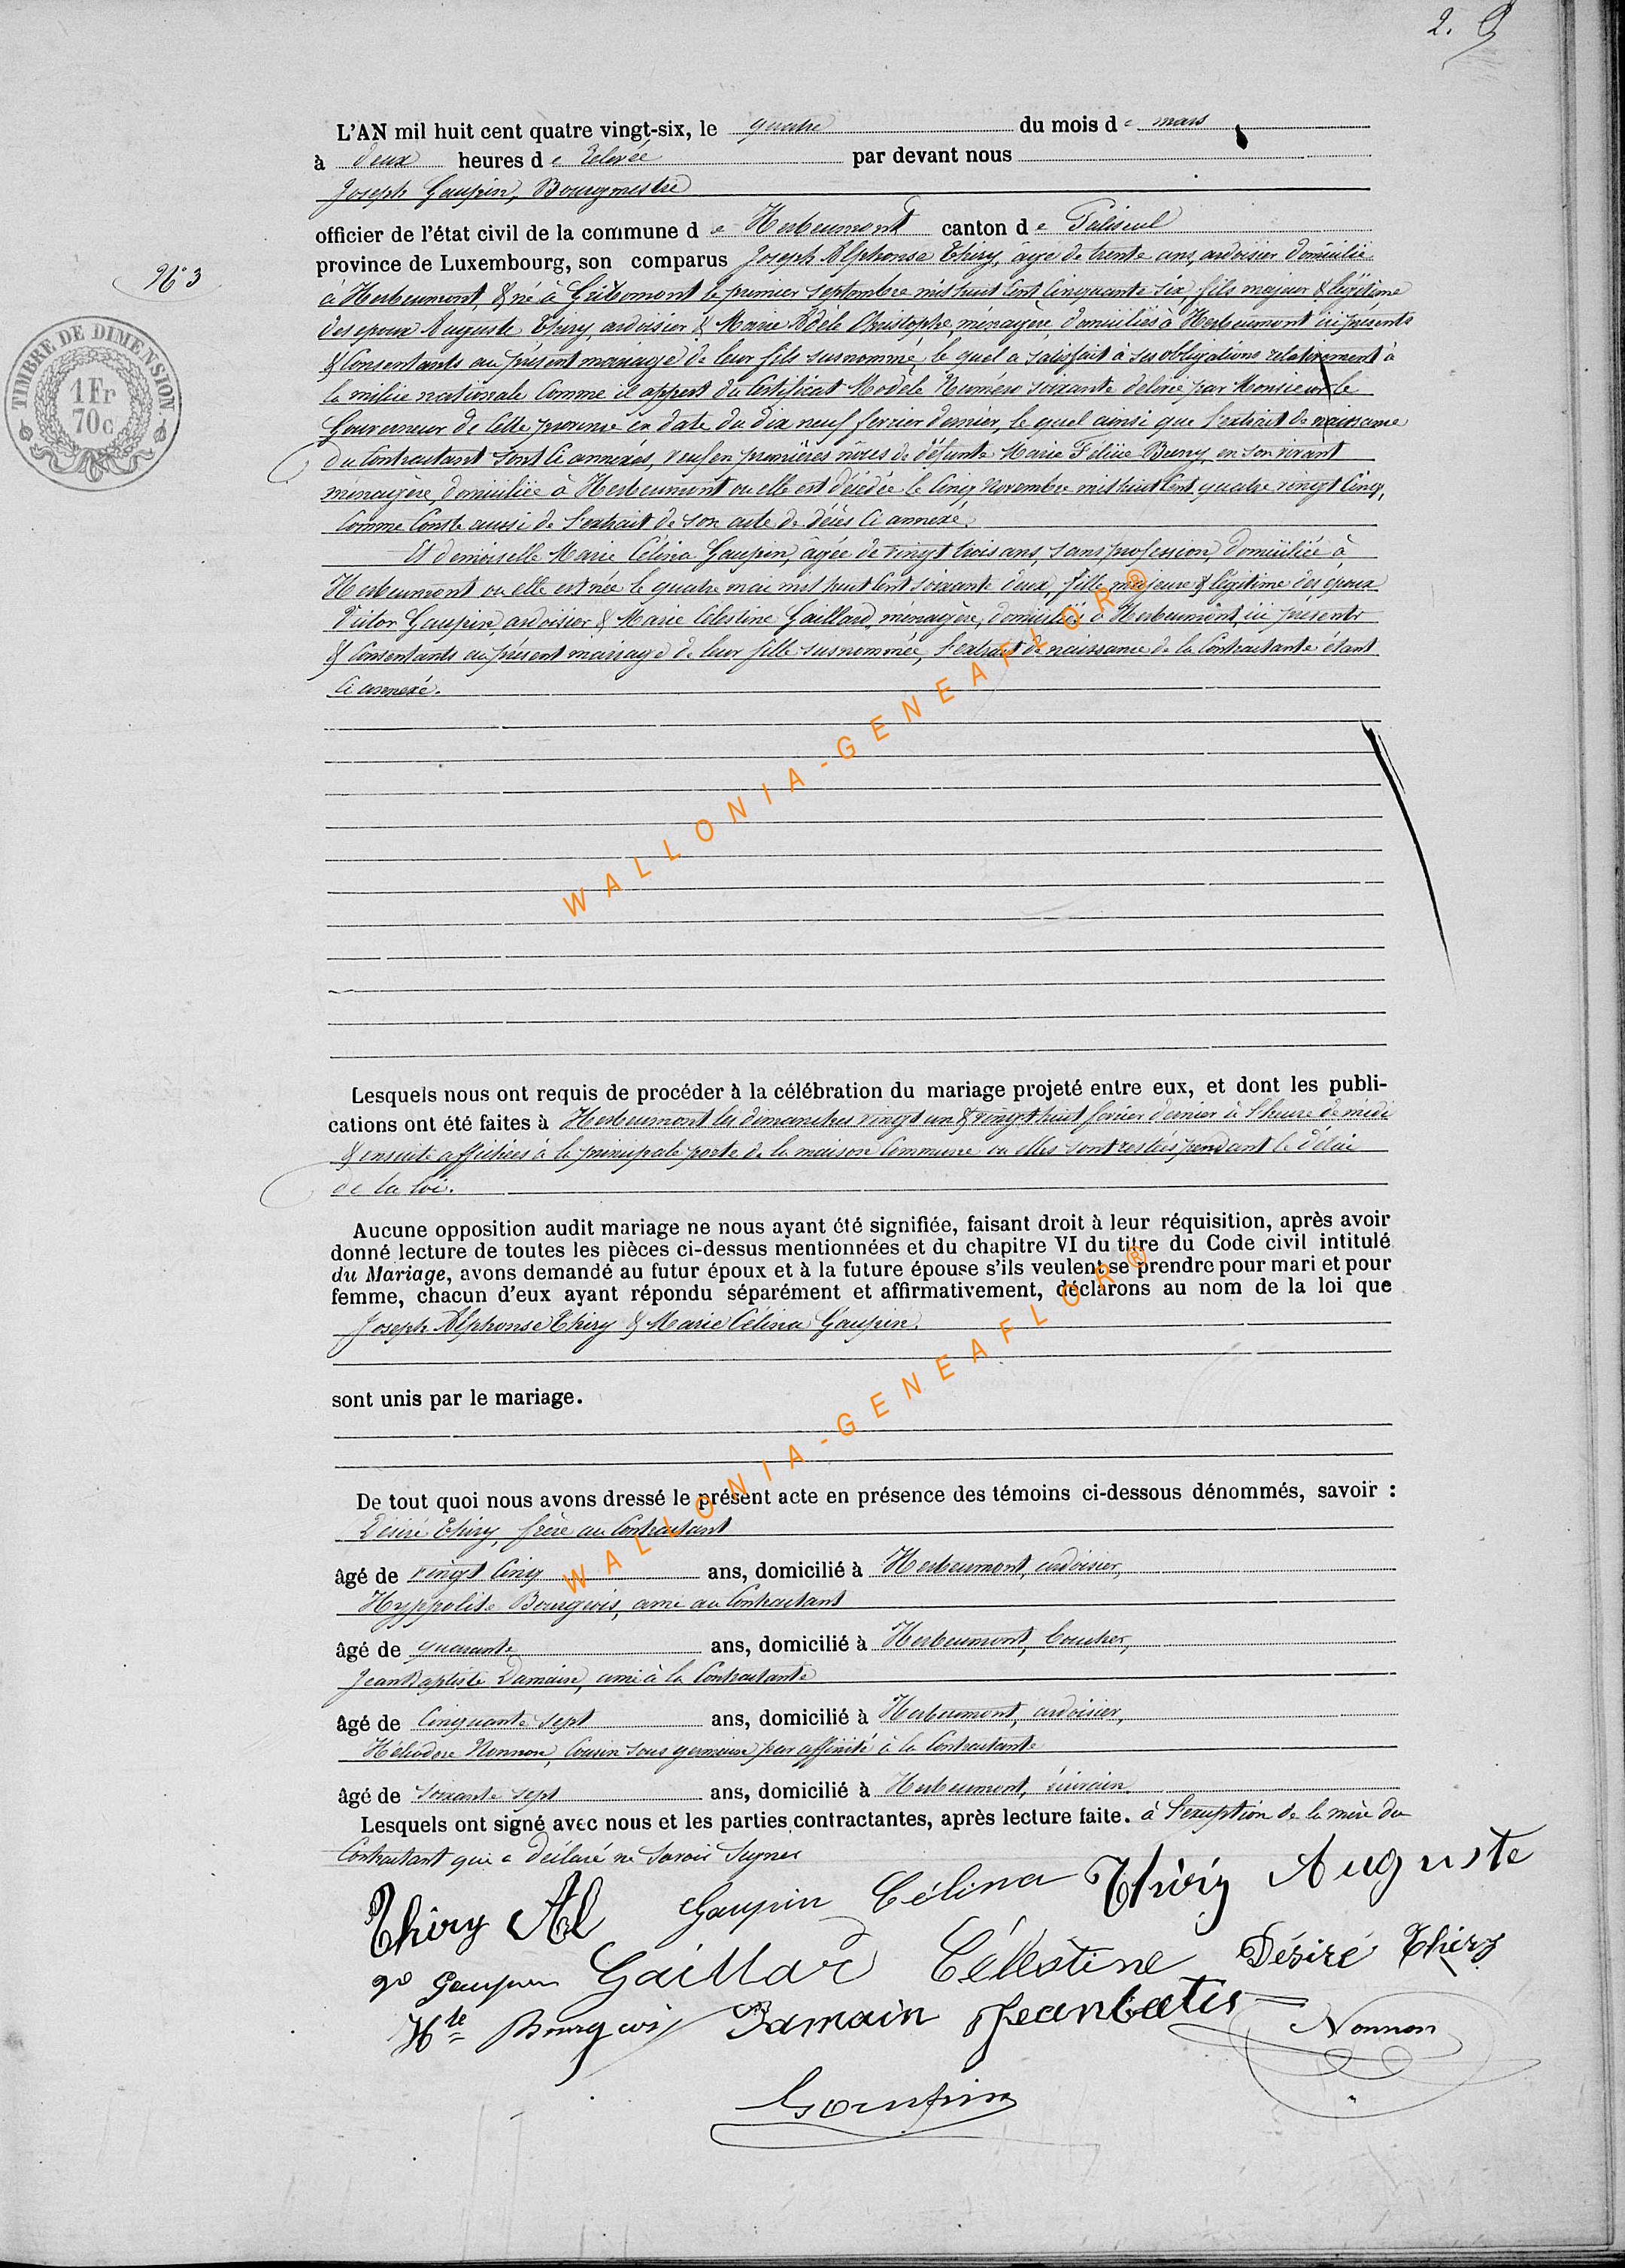 2. G
L'AN mil huit cent quatre vingt-six, le quatre du mois de mars
à deux heures de relevée par devant nous
Joseph Gaupin, Bourgmestre
officier de l'état civil de la commune de Herbeumont canton de Paliseul
N° 3
province de Luxembourg, son comparus Joseph Alphonse Thiry, âgé de trente ans, ardoisier domicilié
à Herbeumont, & né à Gribomont le premier septembre mil huit cent cinquante six, fils majeur & légitime
des epoux Auguste Thiry, ardoisier & Marie Adèle Christophe, ménagère, domiciliés à Herbeumont ici présents
& consentants au présent mariage de leur fils susnommé, le quel a satisfait à ses obligations relativement à
la milice nationale comme il appert du certificat Modèle Numéro soixante délivré par Monsieur le
Gouverneur de cette province en date du dix neuf fevrier dernier, le quel ainsi que l'extrait de naissance
du contractant sont ci annexés, veuf en premières nôces de défunte Marie Félicie Beury, en son vivant
ménagère, domiciliée à Herbeumont ou elle est décédée le cinq Novembre mil huit cent quatre vingt cinq,
comme conste aussi de l'extrait de son acte de décès ci annexé.
Et demoiselle Marie Célina Gaupin, âgée de vingt trois ans, sans profession, domiciliée à
Herbeumont ou elle est née le quatre mai mil huit cent soixante deux, fille majeure & légitime des epoux
Victor Gaupin, ardoisier & Marie Célestine Gaillard, ménagère, domiciliés à Herbeumont, ici présents
& consentants au présent mariage de leur fille susnommée, l'extrait de naissance de la contractante étant
ci annexé.
TIMBRE DE DIMENSION
1 Fr
70 c
WALLONIA-GENEAFLOR®
Lesquels nous ont requis de procéder à la célébration du mariage projeté entre eux, et dont les publi-
cations ont été faites à Herbeumont les dimanches vingt un & vingt huit fevrier dernier à l'heure de midi
& ensuite affichées à la principale porte de la maison commune ou elles sont restées pendant le délai
de la loi.
Aucune opposition audit mariage ne nous ayant été signifiée, faisant droit à leur réquisition, après avoir
donné lecture de toutes les pièces ci-dessus mentionnées et du chapitre VI du titre du Code civil intitulé
du Mariage, avons demandé au futur époux et à la future épouse s'ils veulent se prendre pour mari et pour
femme, chacun d'eux ayant répondu séparément et affirmativement, déclarons au nom de la loi que
Joseph Alphonse Thiry & Marie Célina Gaupin.
sont unis par le mariage.
WALLONIA-GENEAFLOR®
De tout quoi nous avons dressé le présent acte en présence des témoins ci-dessous dénommés, savoir :
Désiré Thiry, frère au contractant
âgé de vingt cinq ans, domicilié à Herbeumont, ardoisier,
Hyppolite Bourgeois, ami au contractant
âgé de quarante ans, domicilié à Herbeumont, boucher,
Jean Baptiste Damain, ami à la contractante
âgé de cinquante sept ans, domicilié à Herbeumont, ardoisier,
Héliodore Nonnon, cousin sous germain par affinité à la contractante
âgé de soixante sept ans, domicilié à Herbeumont, écrivain.
Lesquels ont signé avec nous et les parties contractantes, après lecture faite. à l'exception de la mère du
contractant qui a déclaré ne savoir signer
Thiry Al Gaupin Célina Thiry Auguste
Gaupin Gaillard Célestine Désiré Thiry
Hte Bourgeois Damain Jeanbatis Nonnon
Gaupin